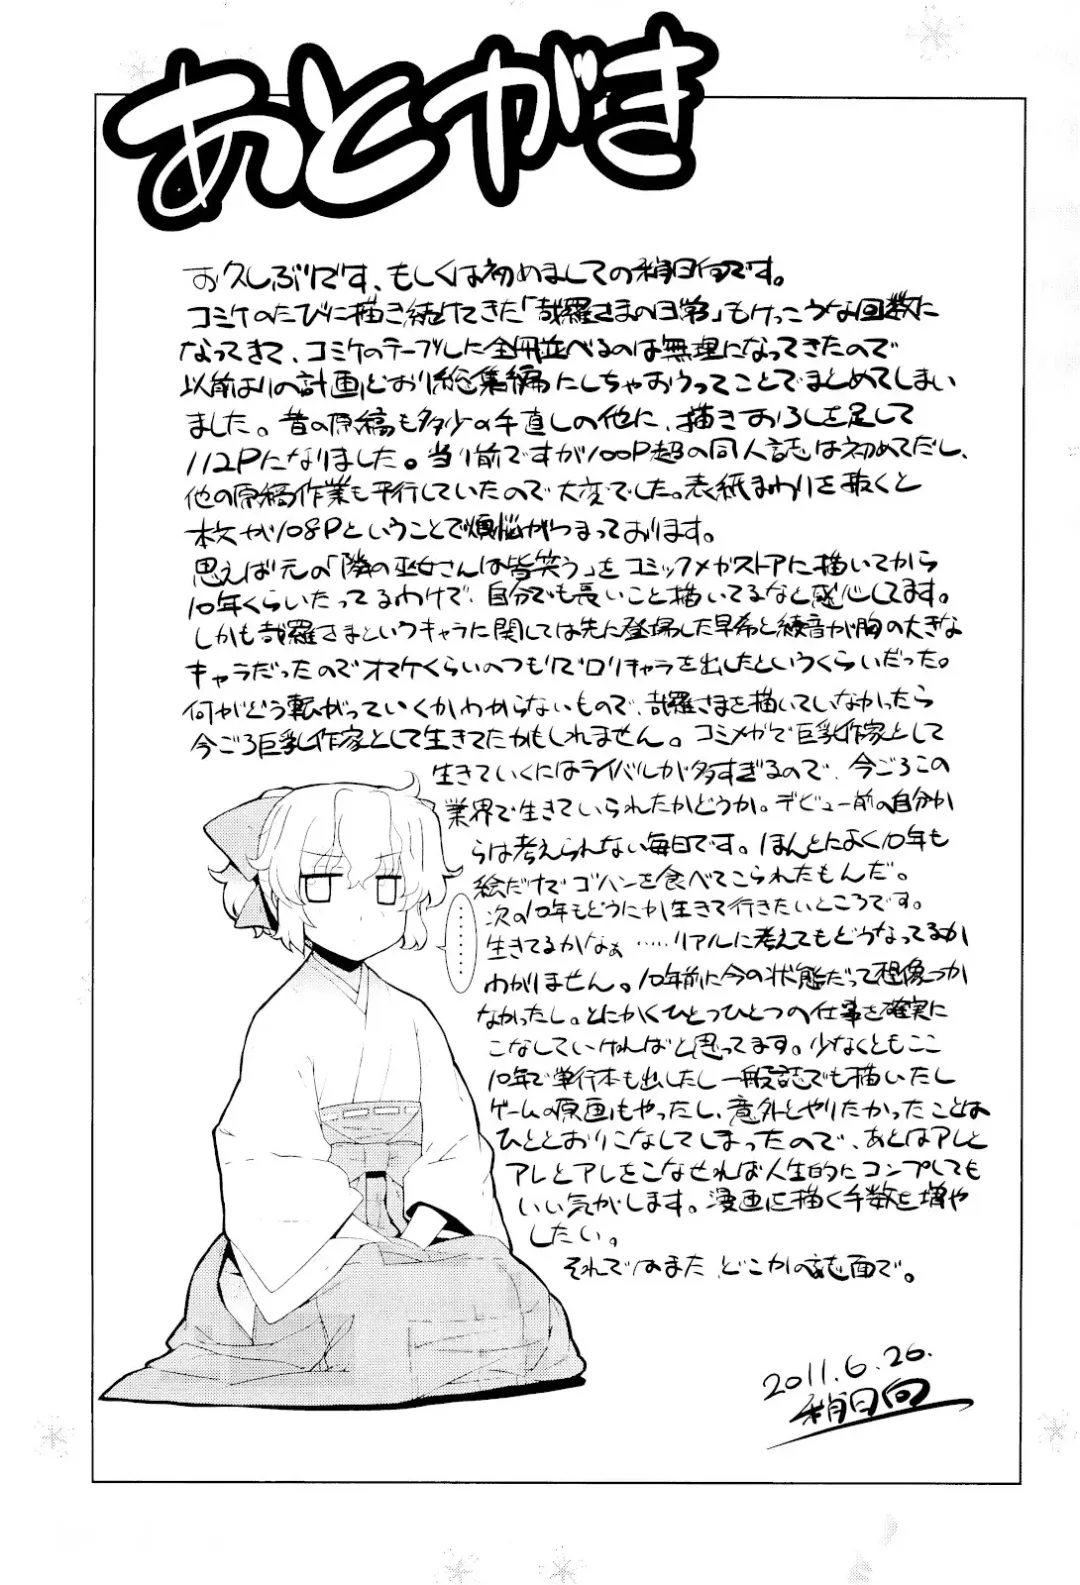 あとがき
お久しぶりです、もしくは初めましての稍日向です。
コミケのたびに描き続けてきた「哉羅さまの日常」もけっこうな回数に
なってきて、コミケのテーブルに全冊並べるのは無理になってきたので
以前よりの計画どおり総集編にしちゃおうってことでまとめてしまい
ました。昔の原稿も多少の手直しの他に、描きおろしを足して
112Pになりました。当り前ですが100P超の同人誌は初めてだし、
他の原稿作業も平行していたので大変でした。表紙まわりを抜くと
本文が108Pということで煩悩がつまっております。
思えば元の「隣の巫女さんは皆笑う」をコミックメガストアに描いてから
10年くらいたってるわけで、自分でも長いこと描いてるなと感心してます。
しかも哉羅さまというキャラに関しては先に登場した早希と綾音が胸の大きな
キャラだったのでオマケくらいのつもりでロリキャラを出したというくらいだった。
何がどう転がっていくかわからないもので、哉羅さまを描いていなかったら
今ごろ巨乳作家として生きてたかもしれません。コミメガで巨乳作家として
生きていくにはライバルが多すぎるので、今ごろこの
業界で生きていられたかどうか。デビュー前の自分か
らは考えられない毎日です。ほんとによく10年も
絵だけでゴハンを食べてこられたもんだ。
次の10年もどうにか生きて行きたいところです。
生きてるかなぁ……リアルに考えてもどうなってるか
わかりません。10年前に今の状態だって想像つか
なかったし。とにかくひとつひとつの仕事を確実に
こなしていければと思ってます。少なくともここ
10年で単行本も出したし一般誌でも描いたし
ゲームの原画もやったし、意外とやりたかったことは
ひととおりこなしてしまったので、あとはアレと
アレとアレをこなせれば人生的にコンプしても
いい気がします。漫画に描く手数を増や
したい。
それではまた どこかの誌面で。
…………
2011.6.26.
稍日向